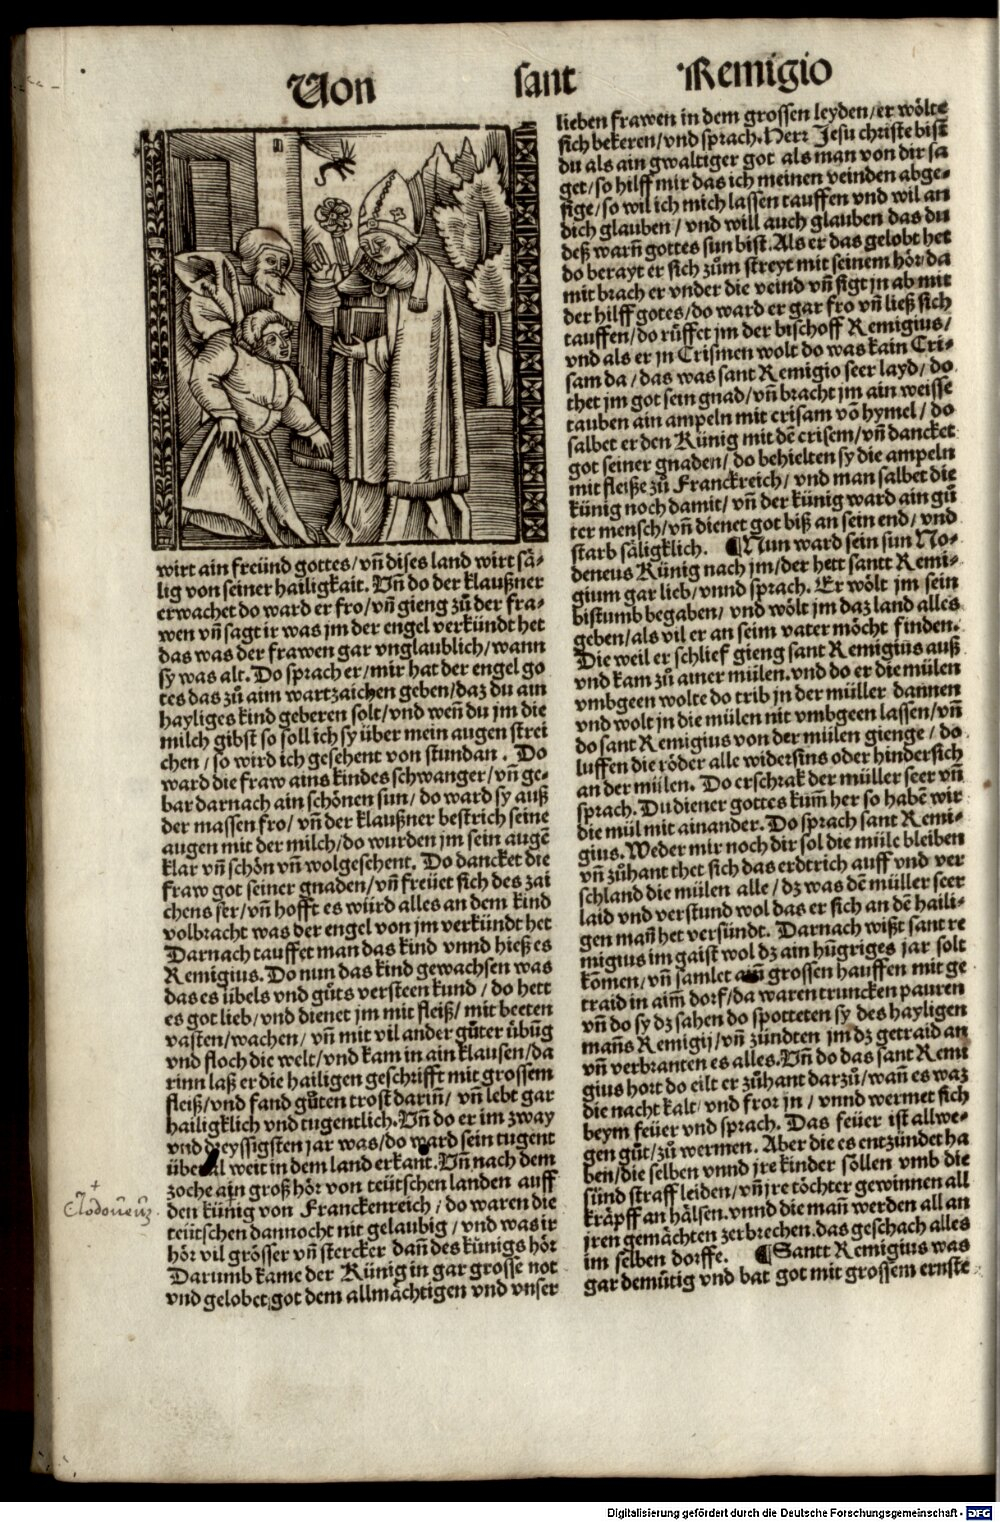 Von sant Remigio
wirt ain freünd gottes/ vñ dises land wirt sä-
lig von seiner hailigkait. Vñ do der klaußner
erwachet do ward er fro/ vñ gieng zů der fra-
wen vñ sagt ir was jm der engel verkündt het
das was der frawen gar vnglaublich/ wann
sy was alt. Do sprach er/ mir hat der engel go
tes das zů aim wartzaichen geben/ daz du ain
hayliges kind geberen solt/ vnd weñ du jm die
milch gibst so soll ich sy über mein augen strei
chen/ so wird ich gesehent von stundan. Do
ward die fraw ains kindes schwanger/ vñ ge-
bar darnach ain schönen sun/ do ward sy auß
der massen fro/ vñ der klaußner bestrich seine
augen mit der milch/ do wurden jm sein augē
klar vñ schön vñ wolgesehent. Do dancket die
fraw got seiner gnaden/ vñ freüet sich des zai
chens ser/ vñ hofft es würd alles an dem kind
volbracht was der engel von jm verkündt het
Darnach tauffet man das kind vnnd hieß es
Remigius. Do nun das kind gewachsen was
das es übels vnd gůts versteen kund/ do hett
es got lieb/ vnd dienet jm mit fleiß/ mit beeten
vasten/ wachen/ vñ mit vil ander gůter übūg
vnd floch die welt/ vnd kam in ain klausen/ da
rinn laß er die hailigen geschrifft mit grossem
fleiß/ vnd fand gůten trost dariñ/ vñ lebt gar
hailigklich vnd tugentlich. Vñ do er im zway
vnd dreyssigsten jar was/ do ward sein tugent
überal weit in dem land erkant. Vñ nach dem
zoche ain groß hör von teütschen landen auff
den künig von Franckenreich/ do waren die
teütschen dannocht nit gelaubig/ vnd was ir
hör vil grösser vñ stercker dañ des künigs hör
Darumb kame der Künig in gar grosse not
vnd gelobet got dem allmächtigen vnd vnser
lieben frawen in dem grossen leyden/ er wölte
sich bekeren/ vnd sprach. Herr Jesu christe bist
du als ain gwaltiger got als man von dir sa
get/ so hilff mir das ich meinen veinden abge-
sige/ so wil ich mich lassen tauffen vnd wil an
dich glauben/ vnd will auch glauben das du
deß warñ gottes sun bist. Als er das gelobt het
do berayt er sich zům streyt mit seinem hör/ da
mit brach er vnder die veind vñ sigt jn ab mit
der hilff gotes/ do ward er gar fro vñ ließ sich
tauffen/ do rüffet jm der bischoff Remigius/
vnd als er jn Crismen wolt do was kain Cri-
sam da/ das was sant Remigio seer layd/ do
thet jm got sein gnad/ vñ bracht jm ain weisse
tauben ain ampeln mit crisam vō hymel/ do
salbet er den Künig mit dē crisem/ vñ dancket
got seiner gnaden/ do behielten sy die ampeln
mit fleiße zů Franckreich/ vnd man salbet die
künig noch damit/ vñ der künig ward ain gů
ter mensch/ vñ dienet got biß an sein end/ vnd
starb säligklich. ¶Nun ward sein sun No-
deneus Künig nach jm/ der hett santt Remi-
gium gar lieb/ vnnd sprach. Er wölt jm sein
bistumb begaben/ vnd wölt jm daz land alles
geben/ als vil er an seim vater möcht finden.
Die weil er schlief gieng sant Remigius auß
vnd kam zů ainer mülen. vnd do er die mülen
vmbgeen wolte do trib jn der müller dannen
vnd wolt jn die mülen nit vmbgeen lassen/ vñ
do sant Remigius von der mülen gienge/ do
luffen die röder alle widersins oder hindersich
an der mülen. Do erschrak der müller seer vñ
sprach. Du diener gottes kum̄ her so habē wir
die mül mit ainander. Do sprach sant Remi-
gius. Weder mir noch dir sol die müle bleiben
vñ zůhant thet sich das erdtrich auff vnd ver
schland die mülen alle/ dz was dē müller seer
laid vnd verstund wol das er sich an dē haili-
gen mañ het versündt. Darnach wißt sant re
migius im gaist wol dz ain hūgriges jar solt
kōmen/ vñ samlet ain grossen hauffen mit ge
traid in aim̄ dorf/ da waren truncken pauren
vñ do sy dz sahen do spotteten sy des hayligen
mañs Remigij/ vñ zündten jm dz getraid an
vñ verbranten es alles. Vñ do das sant Remi
gius hort do eilt er zůhant darzů/ wañ es waz
die nacht kalt/ vnd fror jn/ vnnd wermet sich
beym feüer vnd sprach. Das feüer ist allwe-
gen gůt/ zů wermen. Aber die es entzündet ha
ben/ die selben vnnd jre kinder söllen vmb die
sünd straff leiden/ vñ jre töchter gewinnen all
kräpff an hälsen. vnnd die mañ werden all an
jren gemächten zerbrechen. das geschach alles
im selben dorffe. ¶Santt Remigius was
gar demütig vnd bat got mit grossem ernste
Digitalisierung gefördert durch die Deutsche Forschungsgemeinschaft - DFG